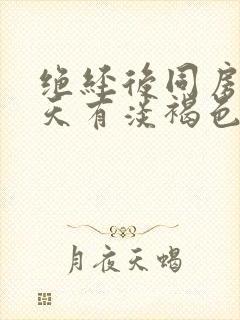 绝经后同房
天有淡褐色
月夜天蝎